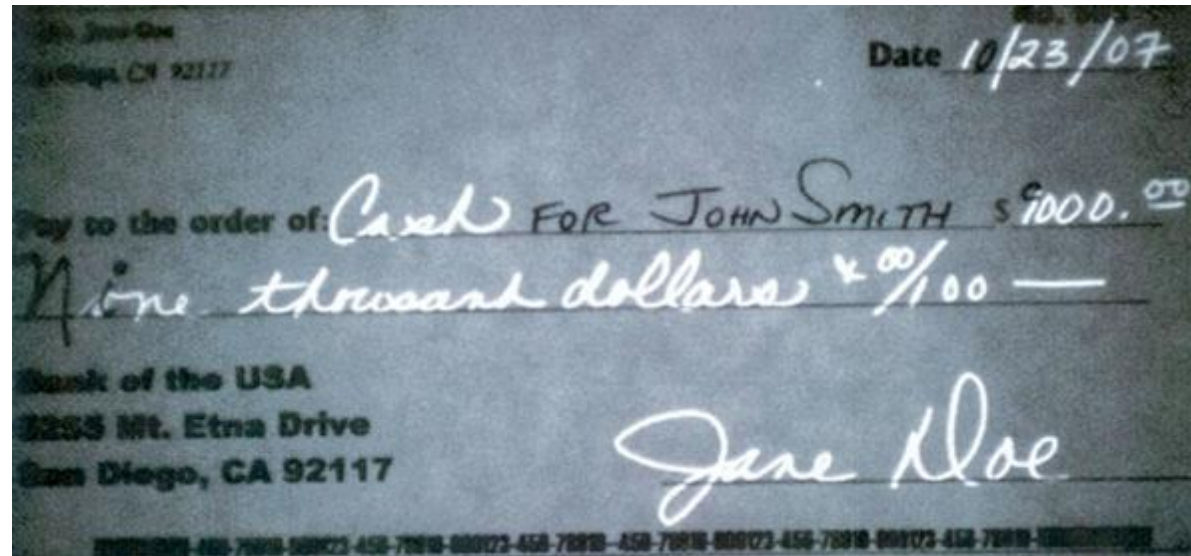 Jane Doe
Diego, CA 92117
Date 10/23/07
Pay to the order of: Cash FOR JOHN SMITH $ 9000.00
Nine thousand dollars & 00/100 —
Bank of the USA
Mt. Etna Drive
San Diego, CA 92117
Jane Doe